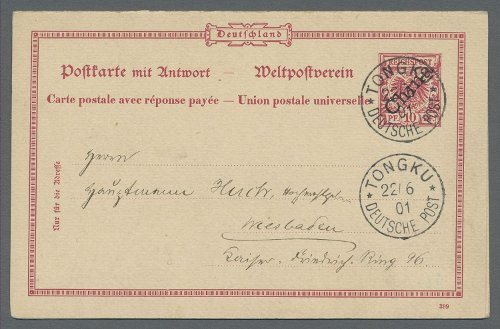 Deutschland
Postkarte mit Antwort — Weltpostverein
Carte postale avec réponse payée — Union postale universelle
REICHSPOST
China
PF. 10
TONGKU
DEUTSCHE POST
TONGKU
22/6
01
DEUTSCHE POST
Nur für die Adresse
Herrn
Hauptmann
Wiesbaden
Kaiser-Friedrich-Ring 96